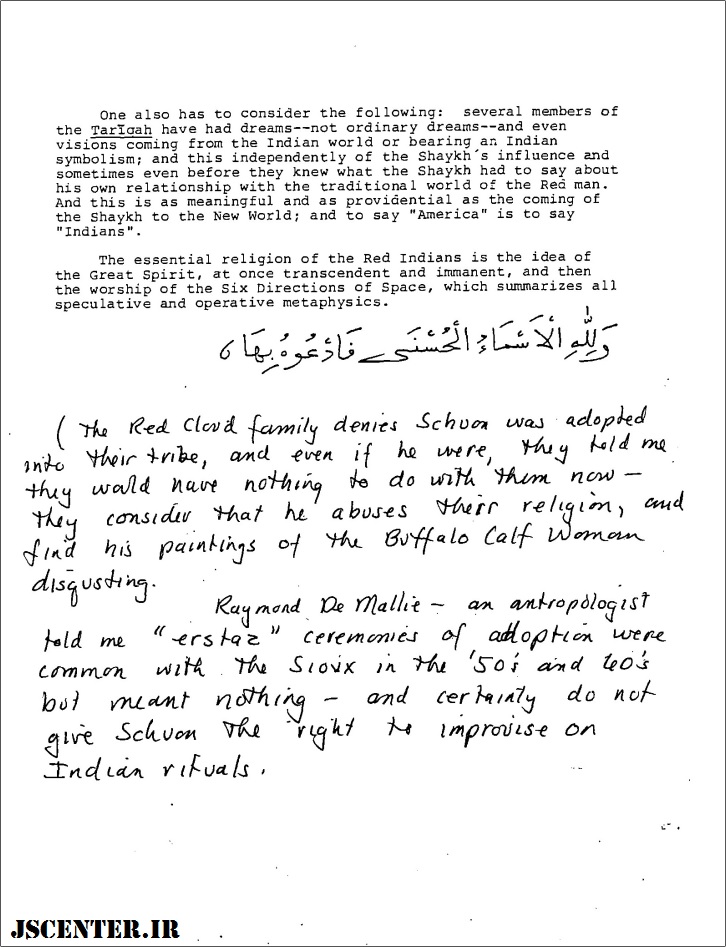 One also has to consider the following: several members of
the Tarīqah have had dreams--not ordinary dreams--and even
visions coming from the Indian world or bearing an Indian
symbolism; and this independently of the Shaykh's influence and
sometimes even before they knew what the Shaykh had to say about
his own relationship with the traditional world of the Red man.
And this is as meaningful and as providential as the coming of
the Shaykh to the New World; and to say "America" is to say
"Indians".
The essential religion of the Red Indians is the idea of
the Great Spirit, at once transcendent and immanent, and then
the worship of the Six Directions of Space, which summarizes all
speculative and operative metaphysics.
وَلِلّٰهِ الْاَسْمَاءُ الْحُسْنَى فَادْعُوهُ بِهَا
( The Red Cloud family denies Schuon was adopted
into their tribe, and even if he were, they told me
they would have nothing to do with them now –
they consider that he abuses their religion, and
find his paintings of the Buffalo Calf Woman
disgusting.
Raymond De Mallie – an antropologist
told me "erstaz" ceremonies of adoption were
common with the Sioux in the '50's and 60's
but meant nothing – and certainty do not
give Schuon the right to improvise on
Indian rituals.
JSCENTER.IR